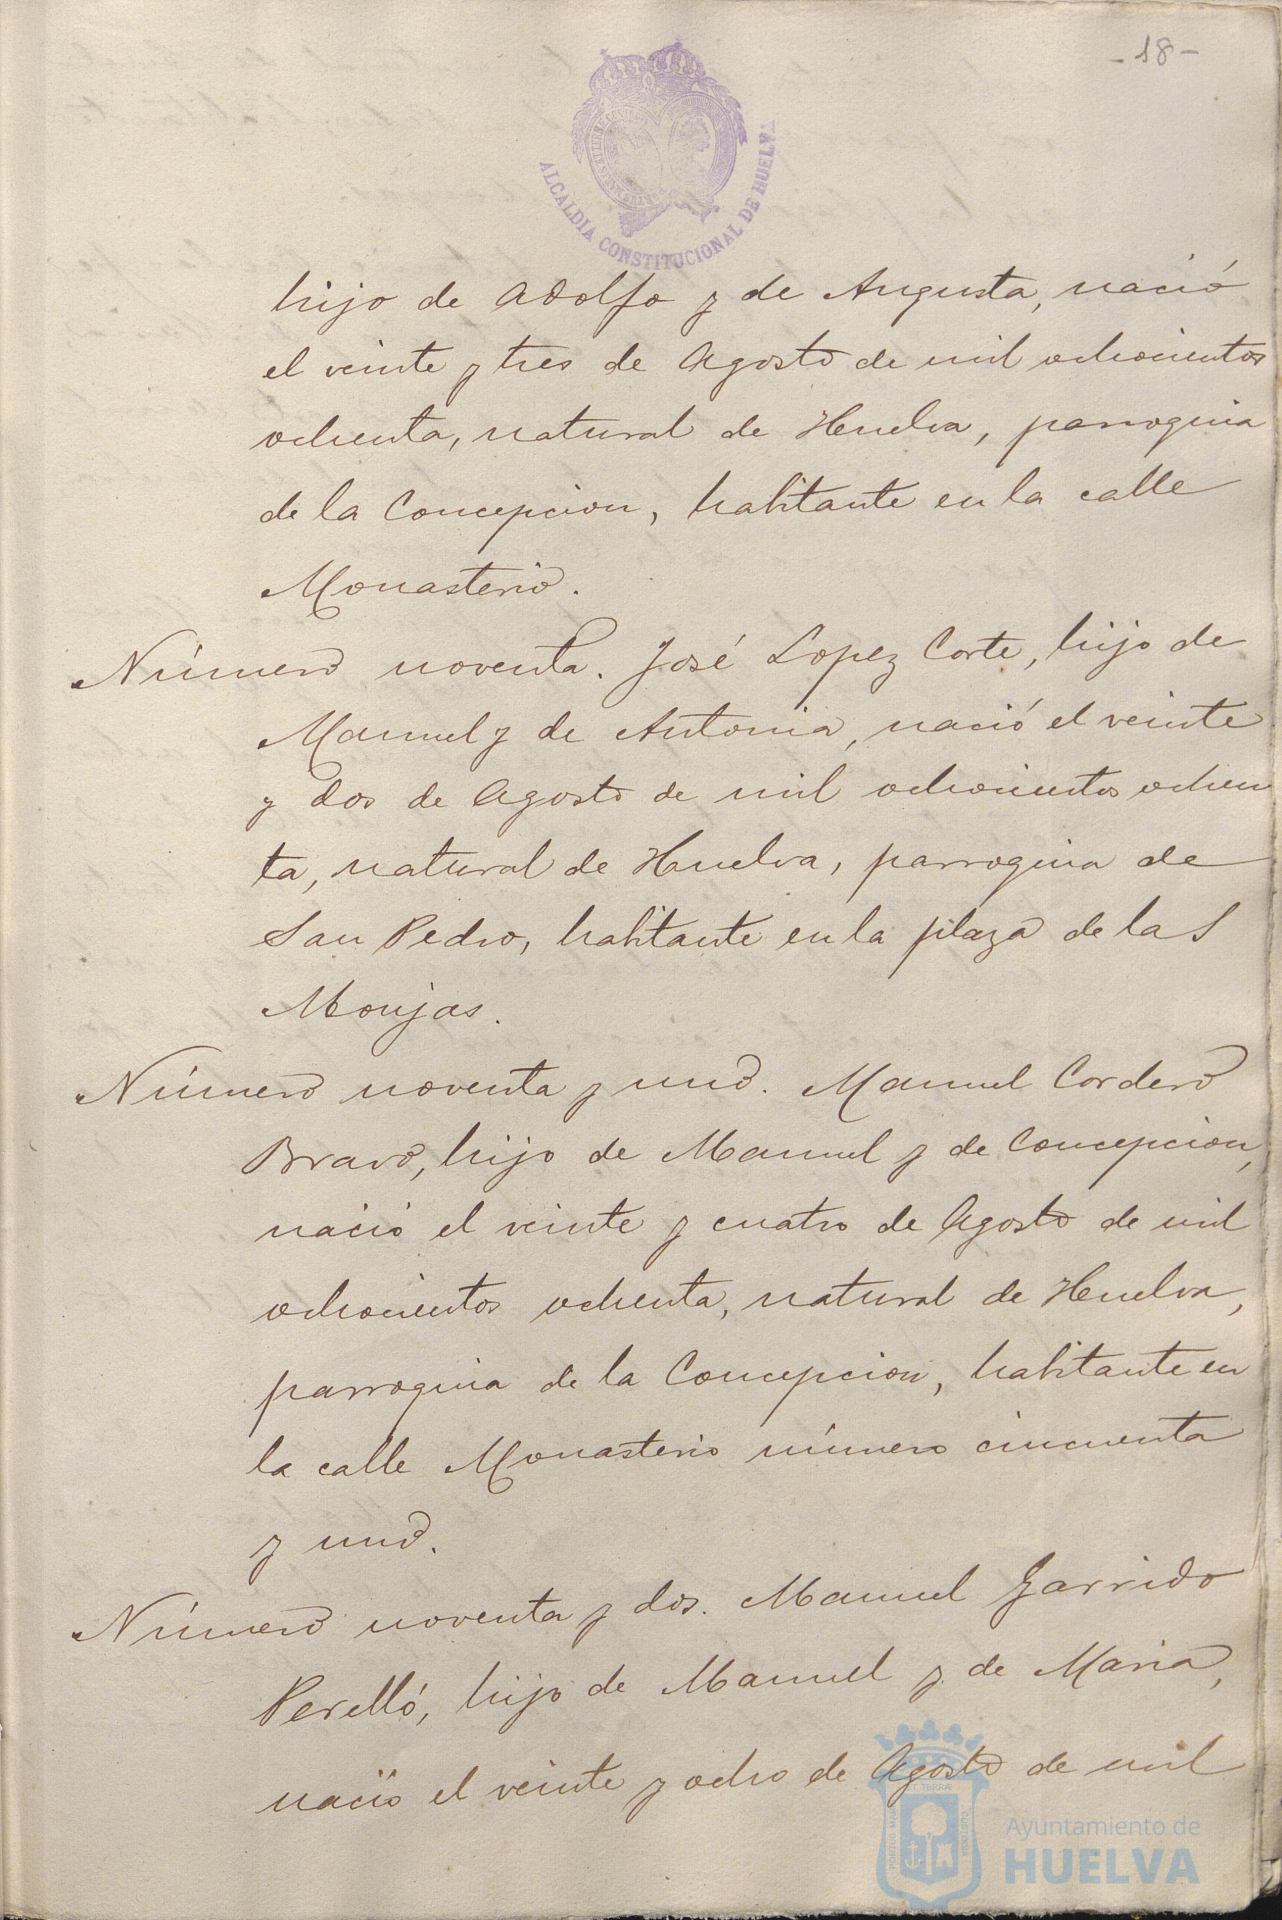 - 18 -
ALCALDIA CONSTITUCIONAL DE HUELVA
hijo de Adolfo y de Augusta, nació
el veinte y tres de Agosto de mil ochocientos
ochenta, natural de Huelva, parroquia
de la Concepcion, habitante en la calle
Monasterio.
Número noventa. José Lopez Corte, hijo de
Manuel y de Antonia, nació el veinte
y dos de Agosto de mil ochocientos ochen
ta, natural de Huelva, parroquia de
San Pedro, habitante en la plaza de las
Monjas.
Número noventa y uno. Manuel Cordero
Bravo, hijo de Manuel y de Concepcion,
nació el veinte y cuatro de Agosto de mil
ochocientos ochenta, natural de Huelva,
parroquia de la Concepcion, habitante en
la calle Monasterio número cincuenta
y uno.
Número noventa y dos. Manuel Garrido
Perelló, hijo de Manuel y de Maria,
nació el veinte y ocho de Agosto de mil
Ayuntamiento de
HUELVA